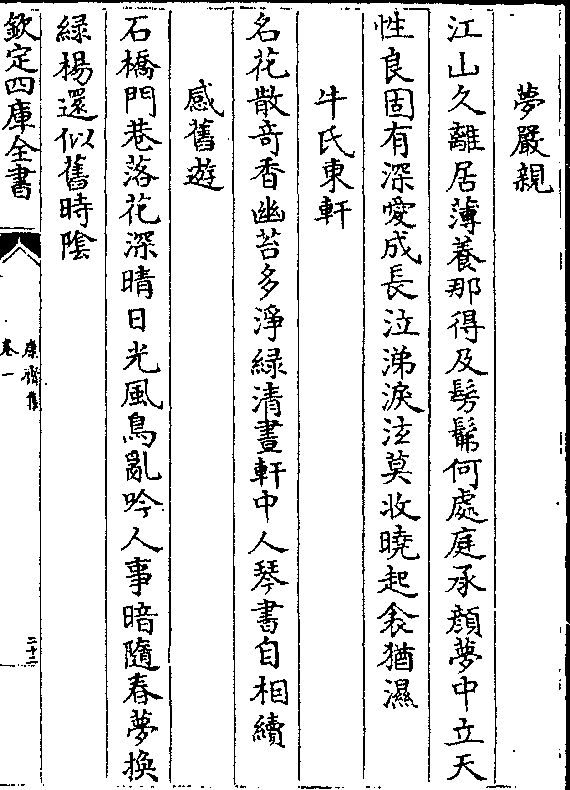 夢嚴親
江山久離居薄養那得及髣髴何處庭承顔夢中立天
性良固有深愛成長泣涕淚泫莫收曉起衾猶濕
牛氏東軒
名花散竒香幽苔多淨緑清晝軒中人琴書自相續
感舊遊
石橋門巷落花深晴日光風鳥亂吟人事暗隨春夢換
緑楊還似舊時隂
欽定四庫全書
康齋集
卷一
二十二